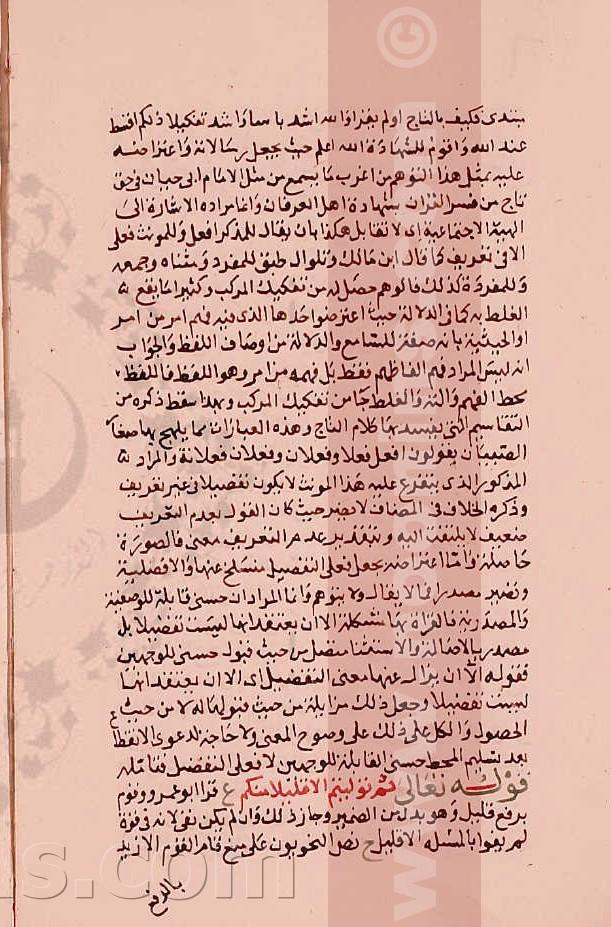 مبتدى فكيف بالتاج اولم يقراوا والله اشد باسا واشد تنكيلا ذلكم اقسط
عند الله واقوم للشهادة الله اعلم حيث يجعل رسالاته واعتراضه
عليه بمثل هذا التوهم من اغرب ما يسمع من مثل الامام ابى حيان فى حق
تاج من فسر القران بشهادة اهل العرفان وانما مراده الاشارة الى
الهيئة الاجتماعية اى لا تقابل هكذا بان يقال للمذكر افعل وللمونث فعلى
الا فى تعريف كما قال ابن مالك وتلو ال طبق للمفرد ومثناه وجمعه
وللمفردة كذلك فالوهم حصل له من تفكيك المركب وكثيرا ما يقع
الغلط به كما فى الدلالة حيث اعترضوا حدها الذى فيه فهم امر من امر
او الحيثية بانه صفة للسامع والدلالة من اوصاف اللفظ والجواب
انه ليس المراد فهم الفاظهم فقط بل فهمه من امر وهو اللفظ فاللفظ
محط الفهم والغلط جا من تفكيك المركب وبهذا سقط ذكره من
التقاسيم التى يفسد بها كلام التاج وهذه العبارات مما يلهج بها صغار
الصبيان يقولون افعل فعلا وفعلان وفعلان فعلانة والمراد
المذكور الذى يتفرع عليه هذا المونث لا يكون تفضيلا فى غير تعريف
وذكره الخلاف فى المضاف لا يضر حيث كان القول بعدم التعريف
ضعيف لا يلتفت اليه وبتقدير عدم التعريف معنى فالصورة
حاصلة واما اعتراضه بجعل فعلى التفضيل منسلخ عنها والافضلية
وتصير مصدرا فما لا يقال ولا يتوهم وانما المراد ان حسنى قابلة للوصفية
والمصدرية فالقراة بها مشكلة الا ان يعتقد انها ليست تفضيلا بل
مصدر بالاصالة والاستثنا متصل من حيث قبول حسنى للوجهين
فقوله الا ان يزال عنها معنى التفضيل اى الا ان يعتقد انها
ليست تفضيلا وجعل ذلك مزايلة من حيث قبولها له لا من حيث
الحصول واتكل على ذلك على وضوح المعنى ولا حاجة لدعوى الانقطاع
بعد تسليم المحط حسنى القابلة للوجهين لا فعلى التفضيل فتامله
قوله تعالى ثم توليتم الا قليلا منكم ع قرا ابو عمرو وقوم
برفع قليل وهو بدل من الضمير وجاز ذلك وان لم يكن نفى لانه فى قوة
لم يفوا بالمسئلة الا قليل ح نص النحويون على منع قام القوم الا زيد
بالرفع